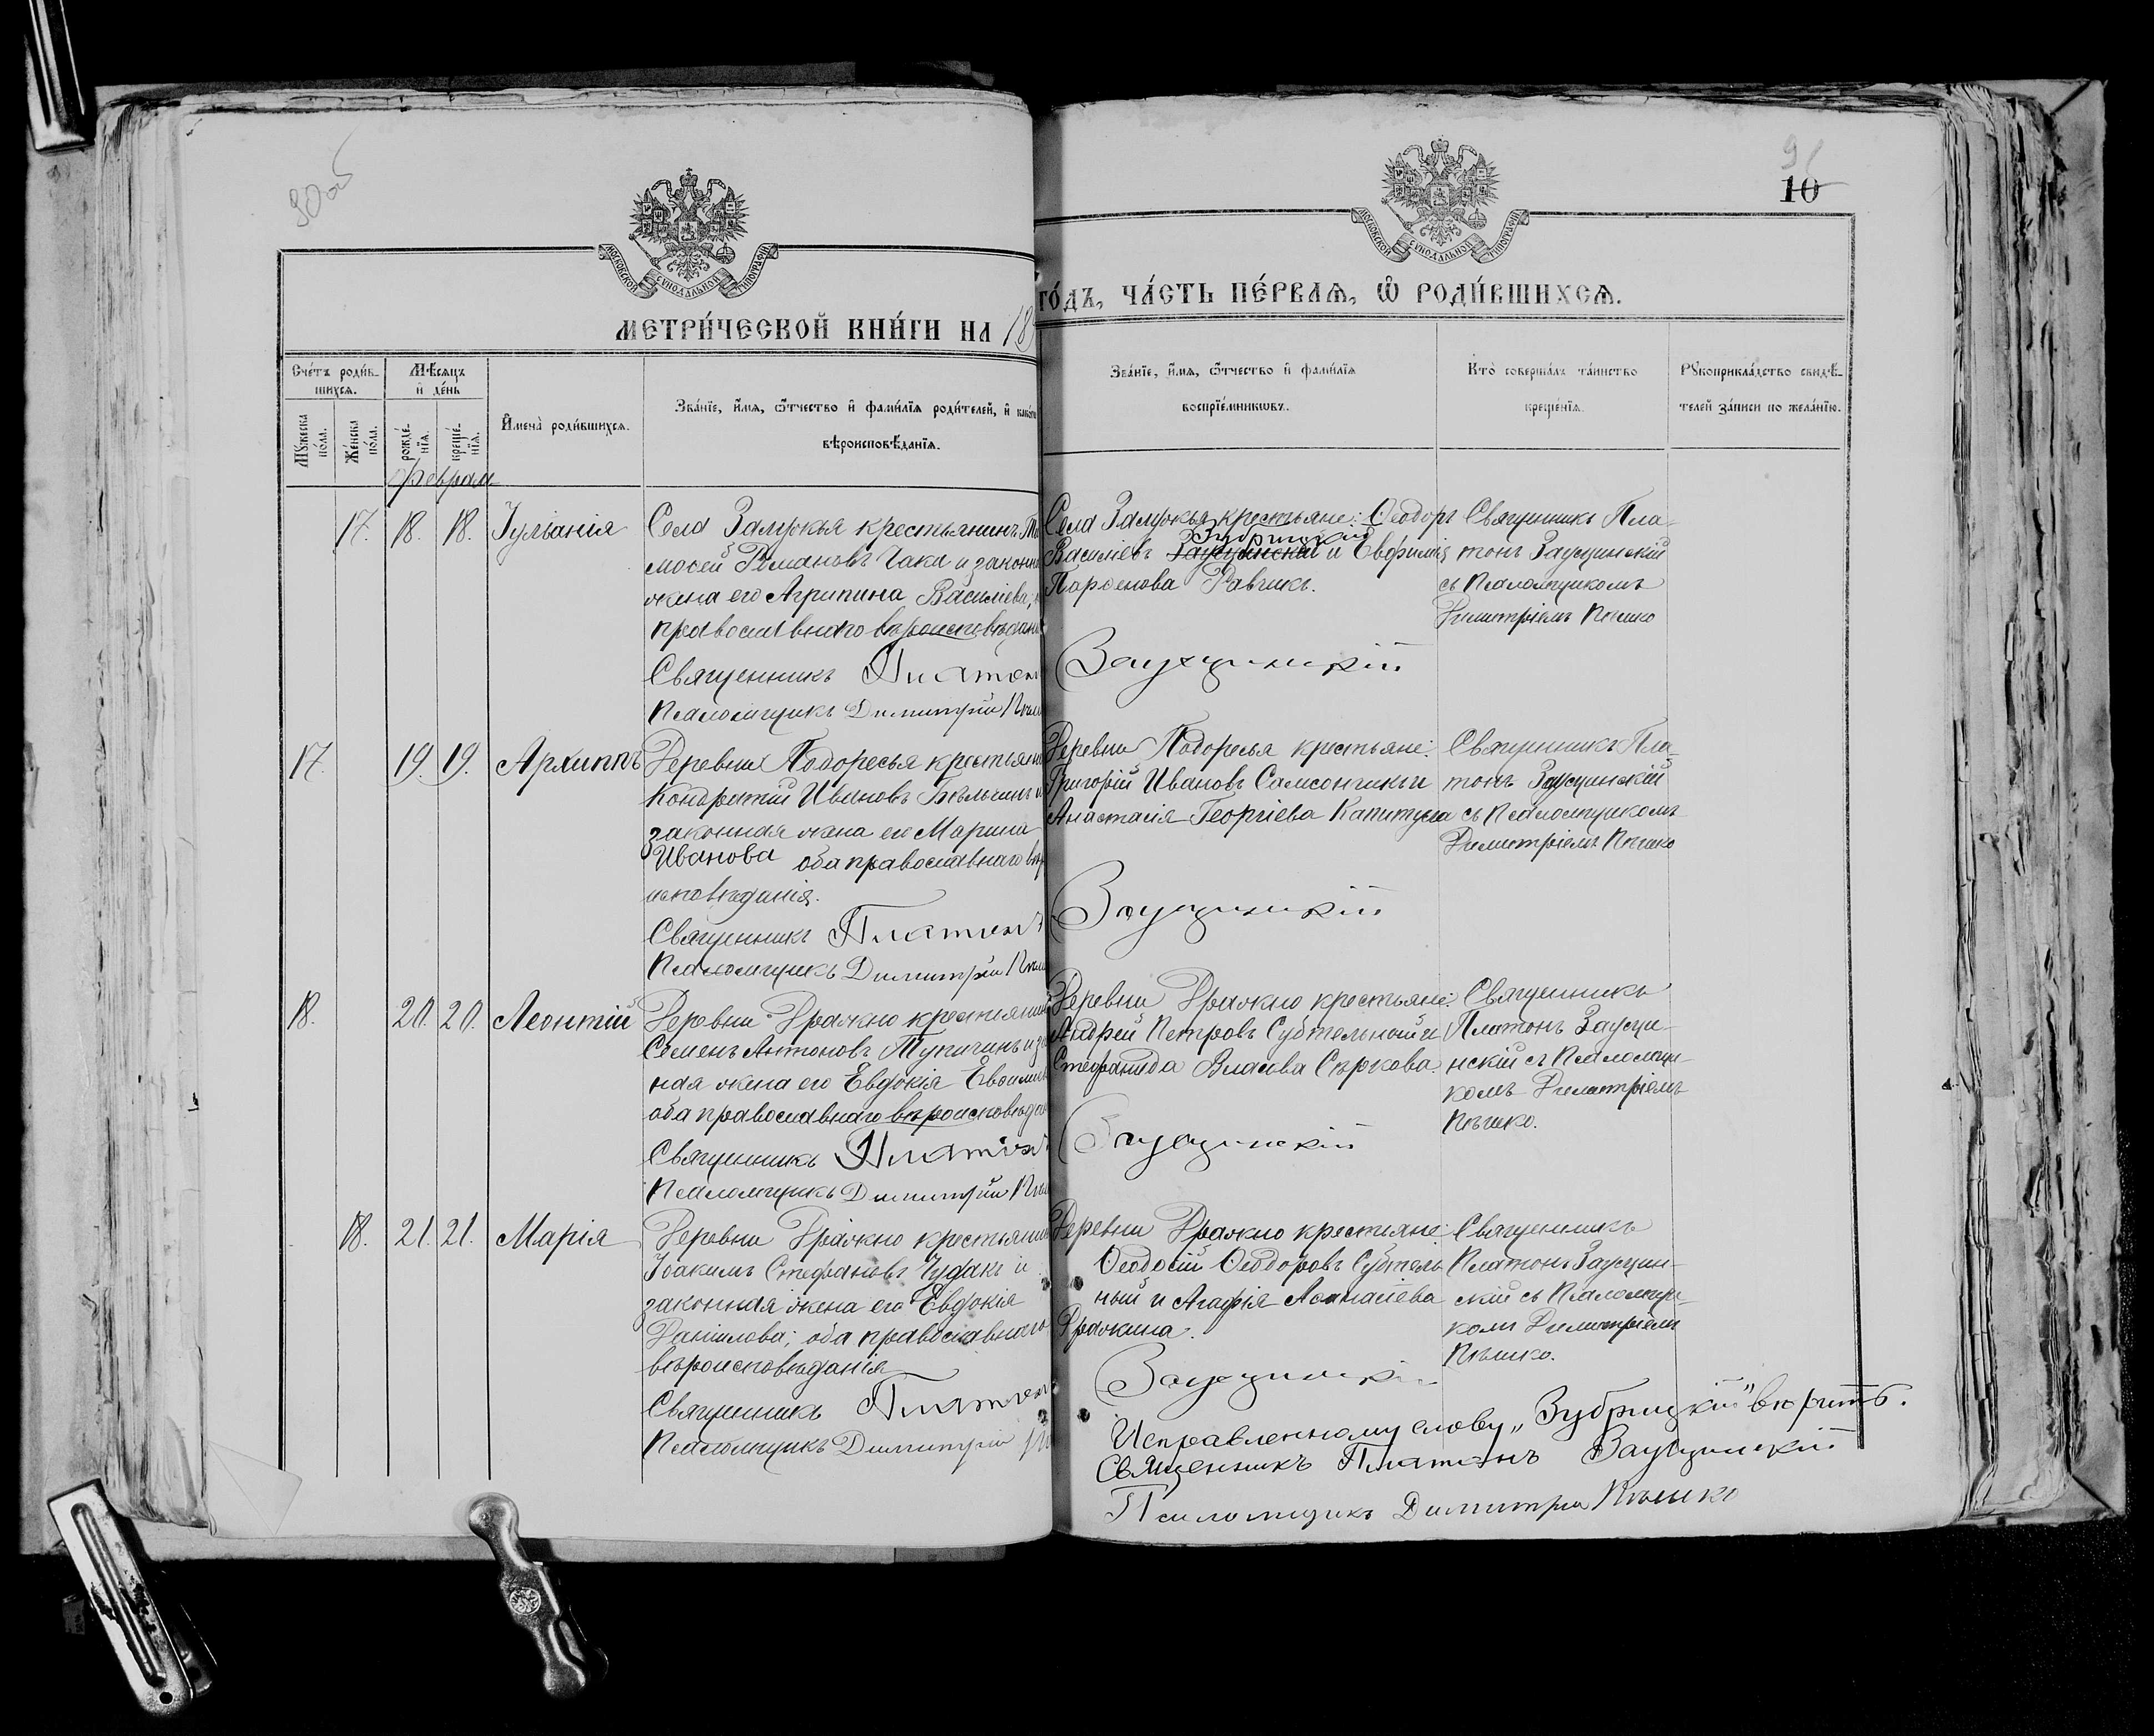 90об
91
10
МОСКОВСКОЙ СѴНОДАЛЬНОЙ ТИПОГРАФІИ
МОСКОВСКОЙ СѴНОДАЛЬНОЙ ТИПОГРАФІИ
МЕТРИ́ЧЕСКОЙ КНИ́ГИ НА 18
ГО́ДЪ, ЧА́СТЬ ПЕ́РВАѦ, Ѽ РОДИ́ВШИХСѦ.
Сче́тъ роди́в-
шихсѧ.
Мѣ́сѧцъ
и҆ де́нь
Мꙋ́жеска
по́ла.
Же́нска
по́ла.
рожде́-
нїѧ.
креще́-
нїѧ.
И҆мена̀ роди́вшихсѧ.
Зва́нїе, и҆́мѧ, ѻ҆́тчество и҆ фами́лїѧ роди́телей, и҆ како́гѡ
вѣроисповѣ́данїѧ.
Зва́нїе, и҆́мѧ, ѻ҆́тчество и҆ фами́лїѧ
воспрїе́мникѡвъ.
Кто̀ соверша́лъ та́инство
креще́нїѧ.
Рꙋкоприкла́дство свидѣ́-
телей за́писи по жела́нїю.
Февраля
17. 18. 18. Іуліанія
Села Залужья крестьянинъ Ти
мофей Романовъ Чака и законн
жена его Агрипина Василіева,
православнаго вѣроисповѣдані
Священникъ Платон
Псаломщикъ Димитрій Пѣш
Села Залужья крестьяне: Ѳеодоръ
Зубрицкій
Василіевъ Заусцинскій и Евфимія
Парѳенова Равчикъ.
Заусцинскій
Священникъ Пла-
тонъ Заусцинскій
съ Псаломщикомъ
Димитріемъ Пѣшко
17. 19. 19. Архиппъ
Деревни Подоресья крестьянин
Кондратій Ивановъ Бѣльчинъ и
законная жена его Марина
Иванова оба православнаго вѣр
исповѣданія.
Священникъ Платонъ
Псаломщикъ Димитрій Пѣш
Деревни Подоресья крестьяне:
Григорій Ивановъ Самсончикъ и
Анастасія Георгіева Капитула
Заусцинскій
Священникъ Пла-
тонъ Заусцинскій
съ Псаломщикомъ
Димитріемъ Пѣшко
18. 20. 20. Леонтій
Деревни Дражно крестьянинъ
Семенъ Антоновъ Тупичинъ и за
ная жена его Евдокія
оба православнаго вѣроисповѣда
Священникъ Платонъ
Псаломщикъ Димитрій Пѣш
Деревни Дражно крестьяне:
Андрей Петровъ Субтельный и
Стефанида Власова Сѣркова.
Заусцинскій
Священникъ
Платонъ Заусци-
нскій съ Псаломщи-
комъ Димитріемъ
Пѣшко.
18. 21. 21. Марія
Деревни Дражно крестьянин
Іоакимъ Стефановъ Чудакъ и
законная жена его Евдокія
Даніилова; оба православнаго
вѣроисповѣданія
Священникъ Платон
Псаломщикъ Димитрій
Деревни Дражно крестьяне:
Ѳеодосій Ѳеодоровъ Субтель-
ный и Агафія Аѳанасіева
Дражина.
Заусцинскій
Священникъ
Платонъ Заусцин-
скій съ Псаломщи-
комъ Димитріемъ
Пѣшко.
Исправленному слову „Зубрицкій" вѣрить.
Священникъ Платонъ Заусцинскій
Псаломщикъ Димитрій Пѣшко